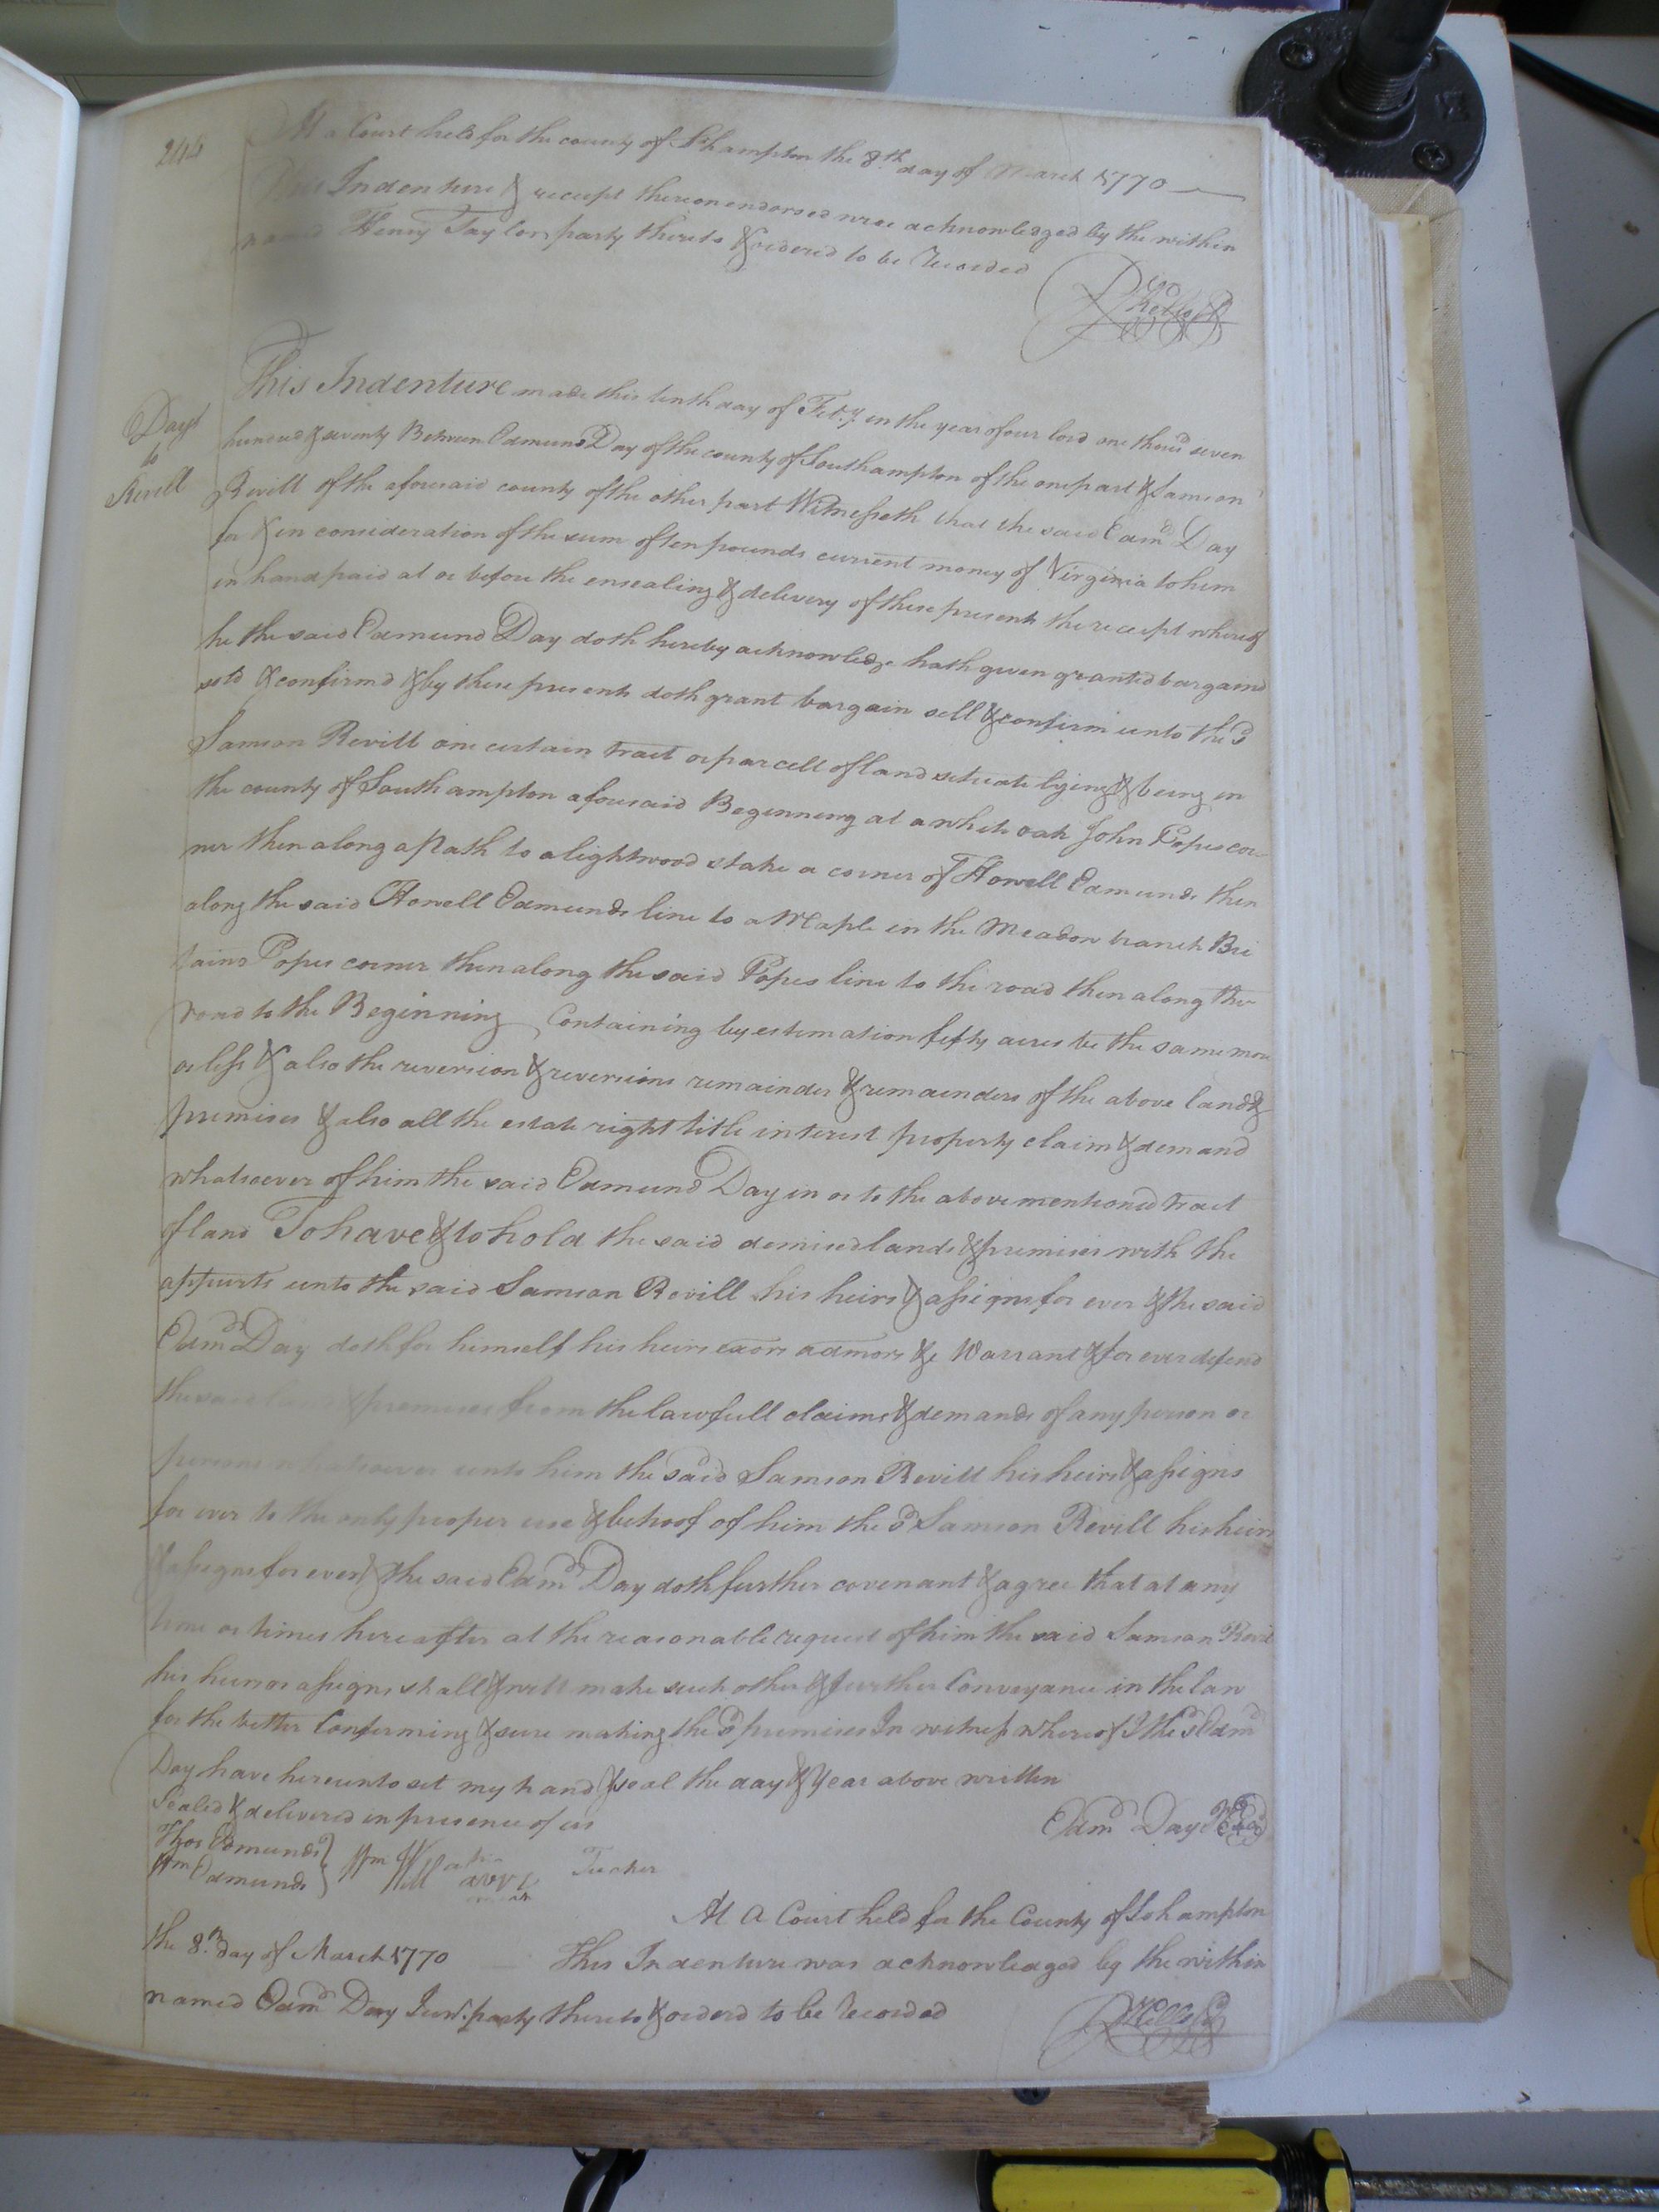 At a Court held for the county of Shampton the 8th day of March 1770
This Indenture & receipt thereon endorsed were acknowledged by the within
named Henry Taylor party thereto & ordered to be Recorded
This Indenture made this tenth day of Feby. in the year of our lord one thousd seven
Day
to
Revill
hundred & seventy Between Edmund Day of the county of Southampton of the one part & Samson
Revill of the aforesaid county of the other part Witnesseth that the said Edmd Day
for & in consideration of the sum of ten pounds current money of Virginia to him
in hand paid at or before the ensealing & delivery of these presents the receipt whereof
he the said Edmund Day doth hereby acknowledge hath given granted bargaind
sold & confirmd & by these presents doth grant bargain sell & confirm unto the sd
Samson Revill one certain tract or parcell of land situate lying & being in
the county of Southampton aforesaid Beginning at a white oak John Popes cor-
ner then along a Path to a lightwood stake a corner of Howell Edmunds then
along the said Howell Edmunds line to a Maple in the Meadow branch Bri
tains Popes corner then along the said Popes line to the road then along the
road to the Beginning Containing by estimation fifty acres be the same more
or less & also the reversion & reversions remainder & remainders of the above land &
premises & also all the estate right title interest property claim & demand
whatsoever of him the said Edmund Day in or to the above mentioned tract
of land To have & to hold the said demised lands & premises with the
appurts unto the said Samson Revill his heirs & assigns for ever & the said
Edmd Day doth for himself his heirs exors admors &c Warrant & for ever defend
the said & premises from the lawfull claims & demands of any person or
persons whatsoever unto him the said Samson Revill his heirs & assigns
for ever to the only proper use & behoof of him the sd Samson Revill his heirs
& assigns for ever & the said Edmd Day doth further covenant & agree that at any
time or times hereafter at the reasonable request of him the said Samson Revill
his heirs or assigns shall & will make such other & further Conveyance in the law
for the better Confirming & sure making the sd premises In witness whereof I the sd Edmd
Day have hereunto set my hand & seal the day & year above written
Sealed & delivered in presence of us
Edmd Day
Thos Edmunds
Wm Edmunds
Tucker
At a Court held for the County of Sohampton
the 8th day of March 1770 This Indenture was acknowledged by the within
named Edmd Day Junr. party thereto & orderd to be Recorded